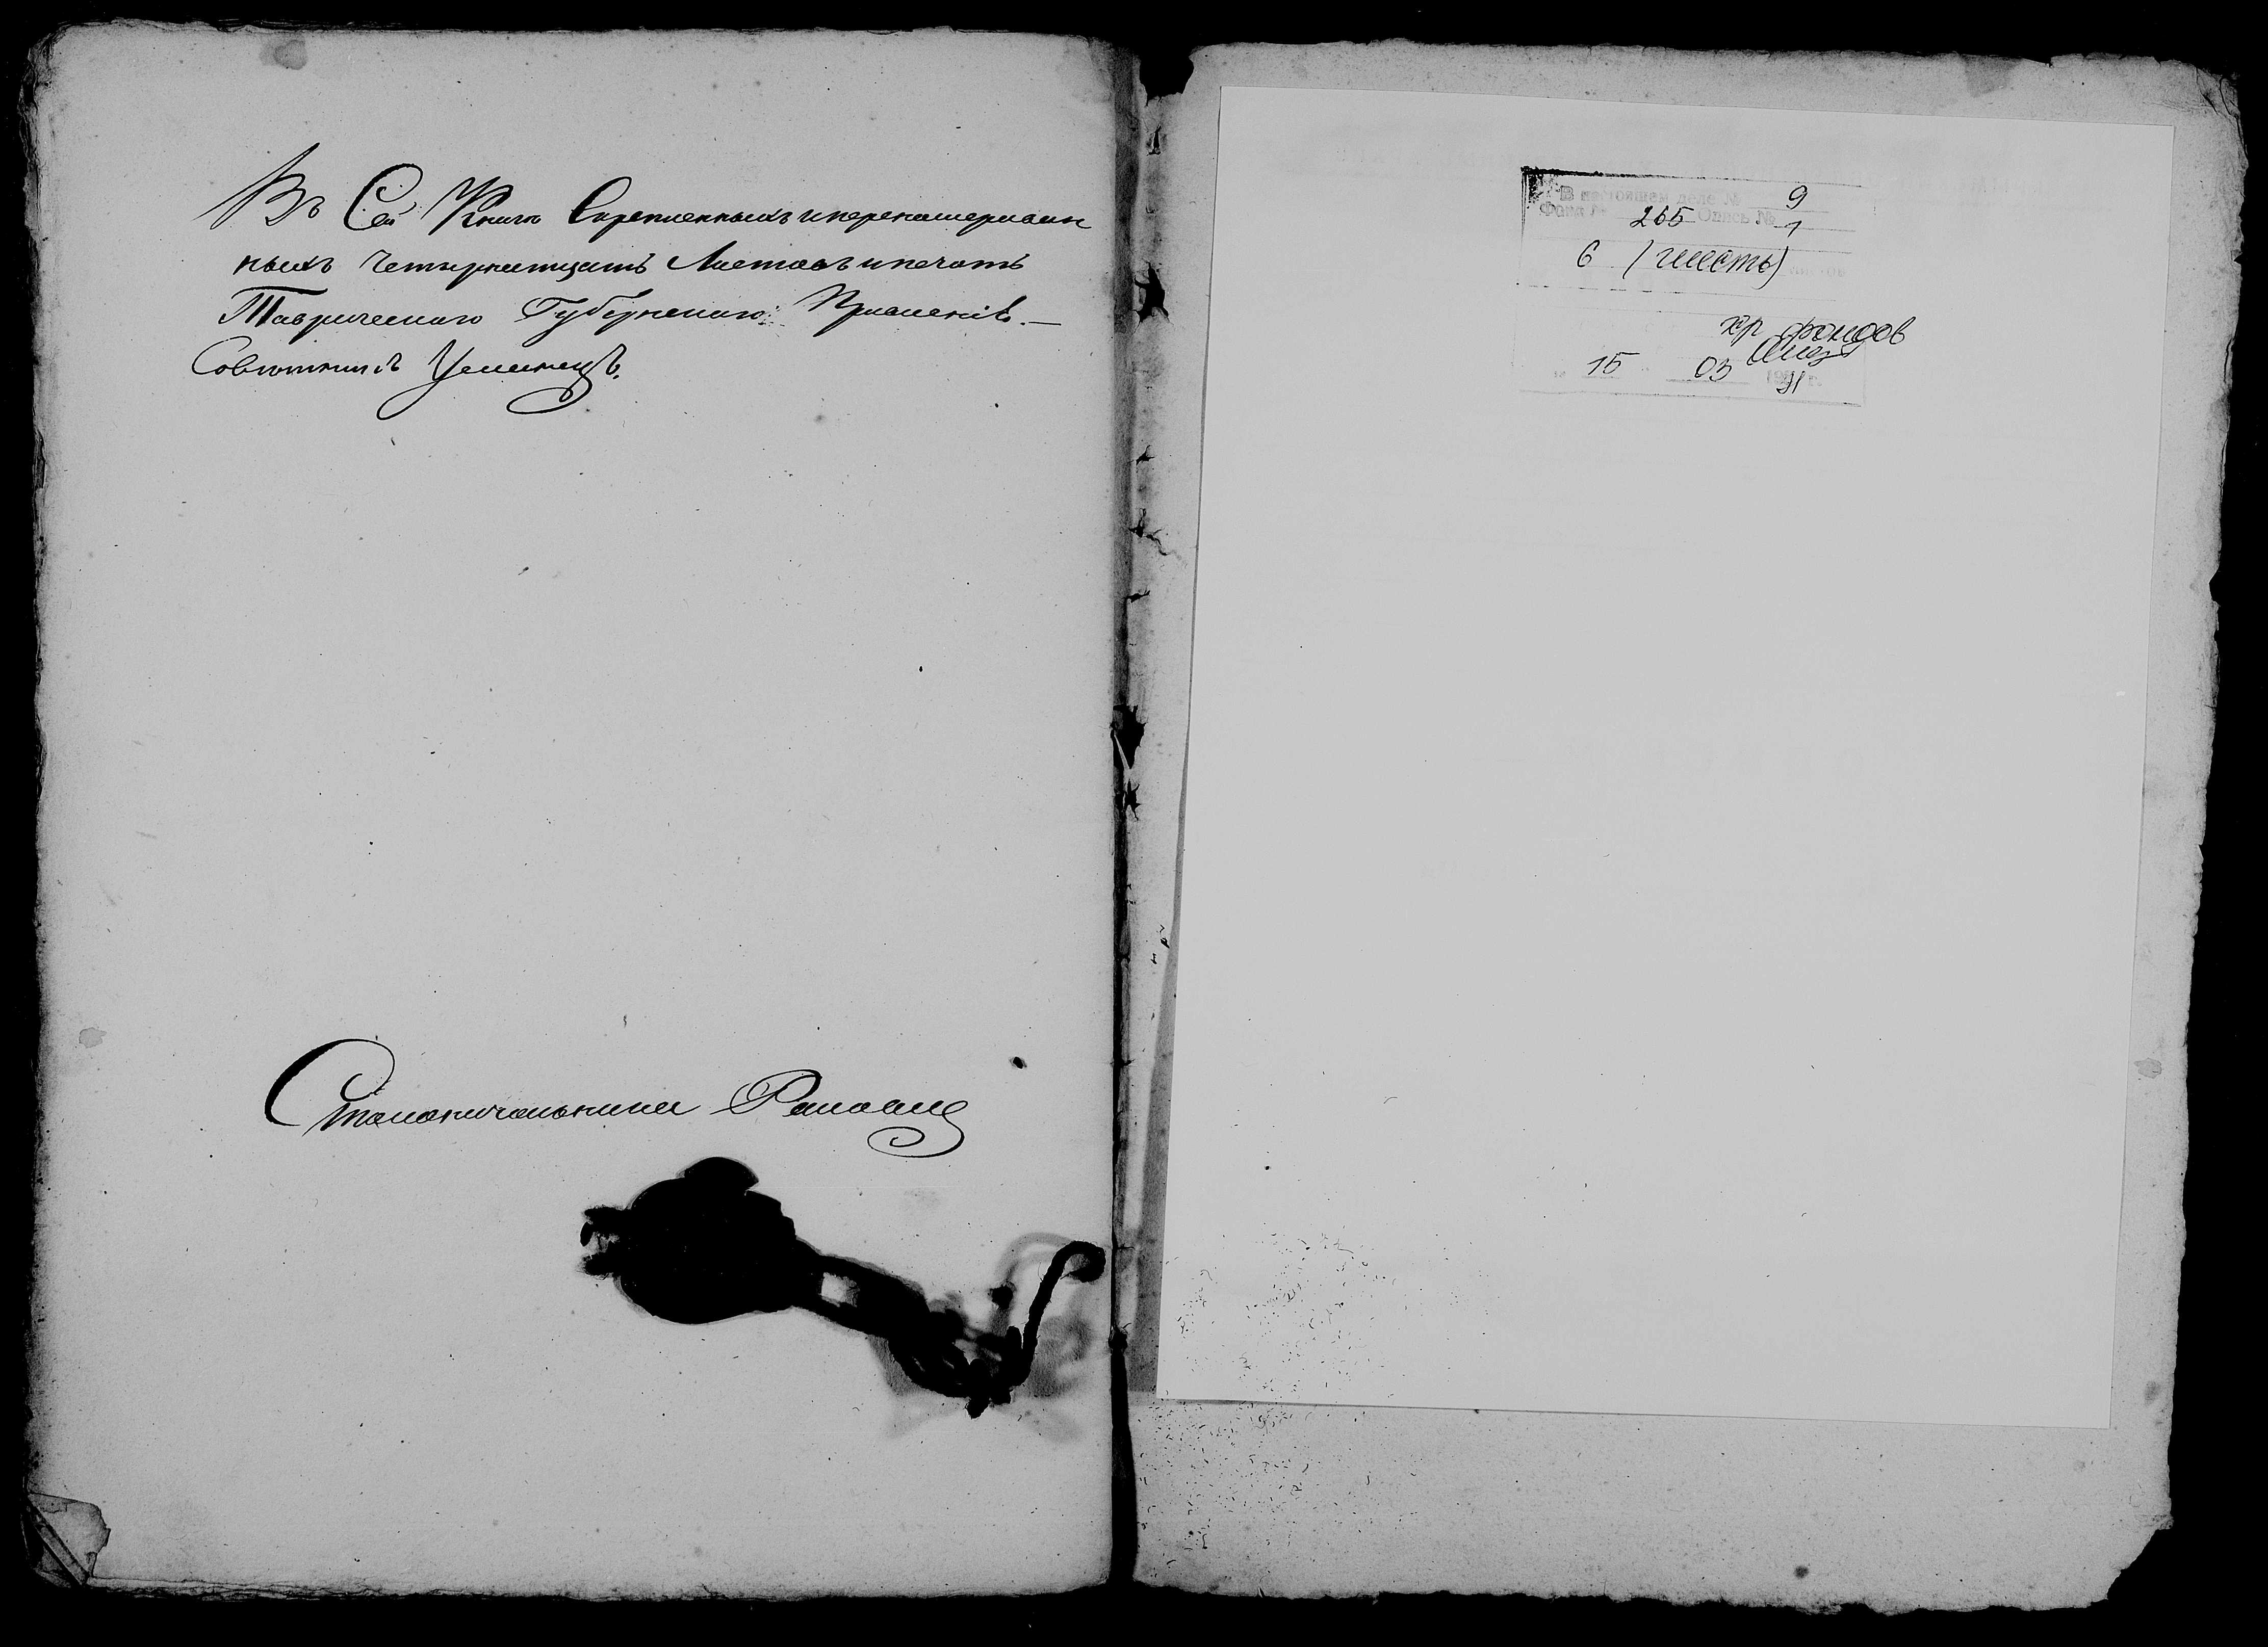 Въ Сей Книге Скрепленныхъ и перенумерован
ныхъ четырнатцать Листовъ и печать
Таврическаго Губернскаго Правленія. —
Советникъ
Столоначальникъ
В настоящем деле № 9
Фонд № 265 Опись № 1
6 (шесть)
хр фондов
15 03 91